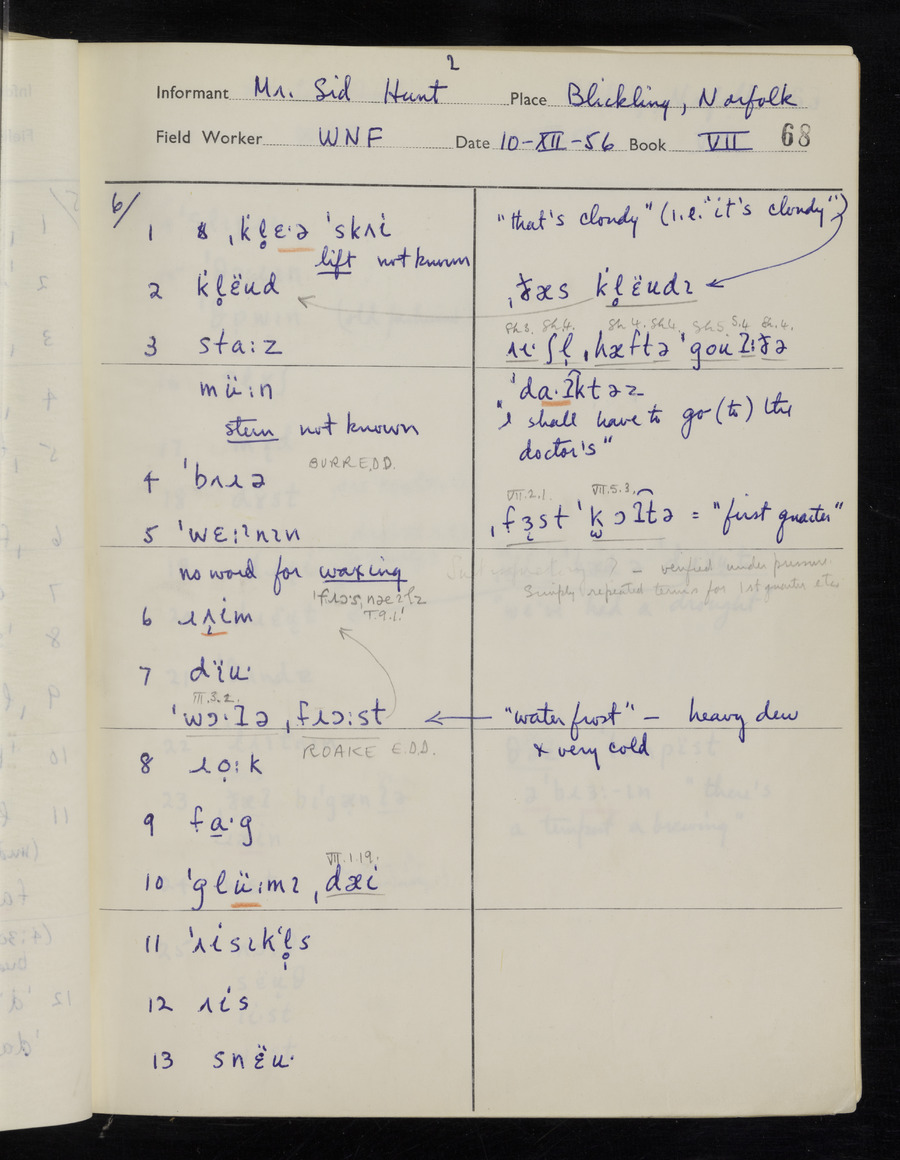 2
Informant Mr. Sid Hunt Place Blickling, Norfolk
Field Worker WNF Date 10-XII-56 Book VII 68
6/
1 ə ˌkl̥ɛ·ə ˈskʌi
lift not known
2 kl̥ëud
3 sta:z
mü:n
stem not known
4 ˈbɹɩə
BURR E.D.D.
5 ˈwɛ:ʔnɪn
no word for waxing
6 ɹʌ̣im
7 dïu·
III.3.2.
ˈwɔ·ʔə ˌfɹɔ:st
ROAKE E.D.D.
8 ɹo̤:k
9 fa·g
VII.1.19.
10 ˈglü:mɪ ˌdæi
11 ˈʌisɪkl̥s
12 ʌis
13 snëu·
"that's cloudy" (i.e. "it's cloudy")
ˌðæs kl̥ëudɪ
Sh.3. Sh.4. Sh.4. Sh.4. Sh.5. S.4. Sh.4.
ʌi· ʃl̥ ˌhæftə ˈgou ʔɪ:ðə
ˈda·ʔktəz
"I shall have to go (to) the
doctor's"
VII.2.1. VII.5.3.
ˌfɜst ˈkwɔʔtə = "first quarter"
– verified under pressure.
Simply repeated terms for 1st quarter etc.
"water frost" – heavy dew
& very cold